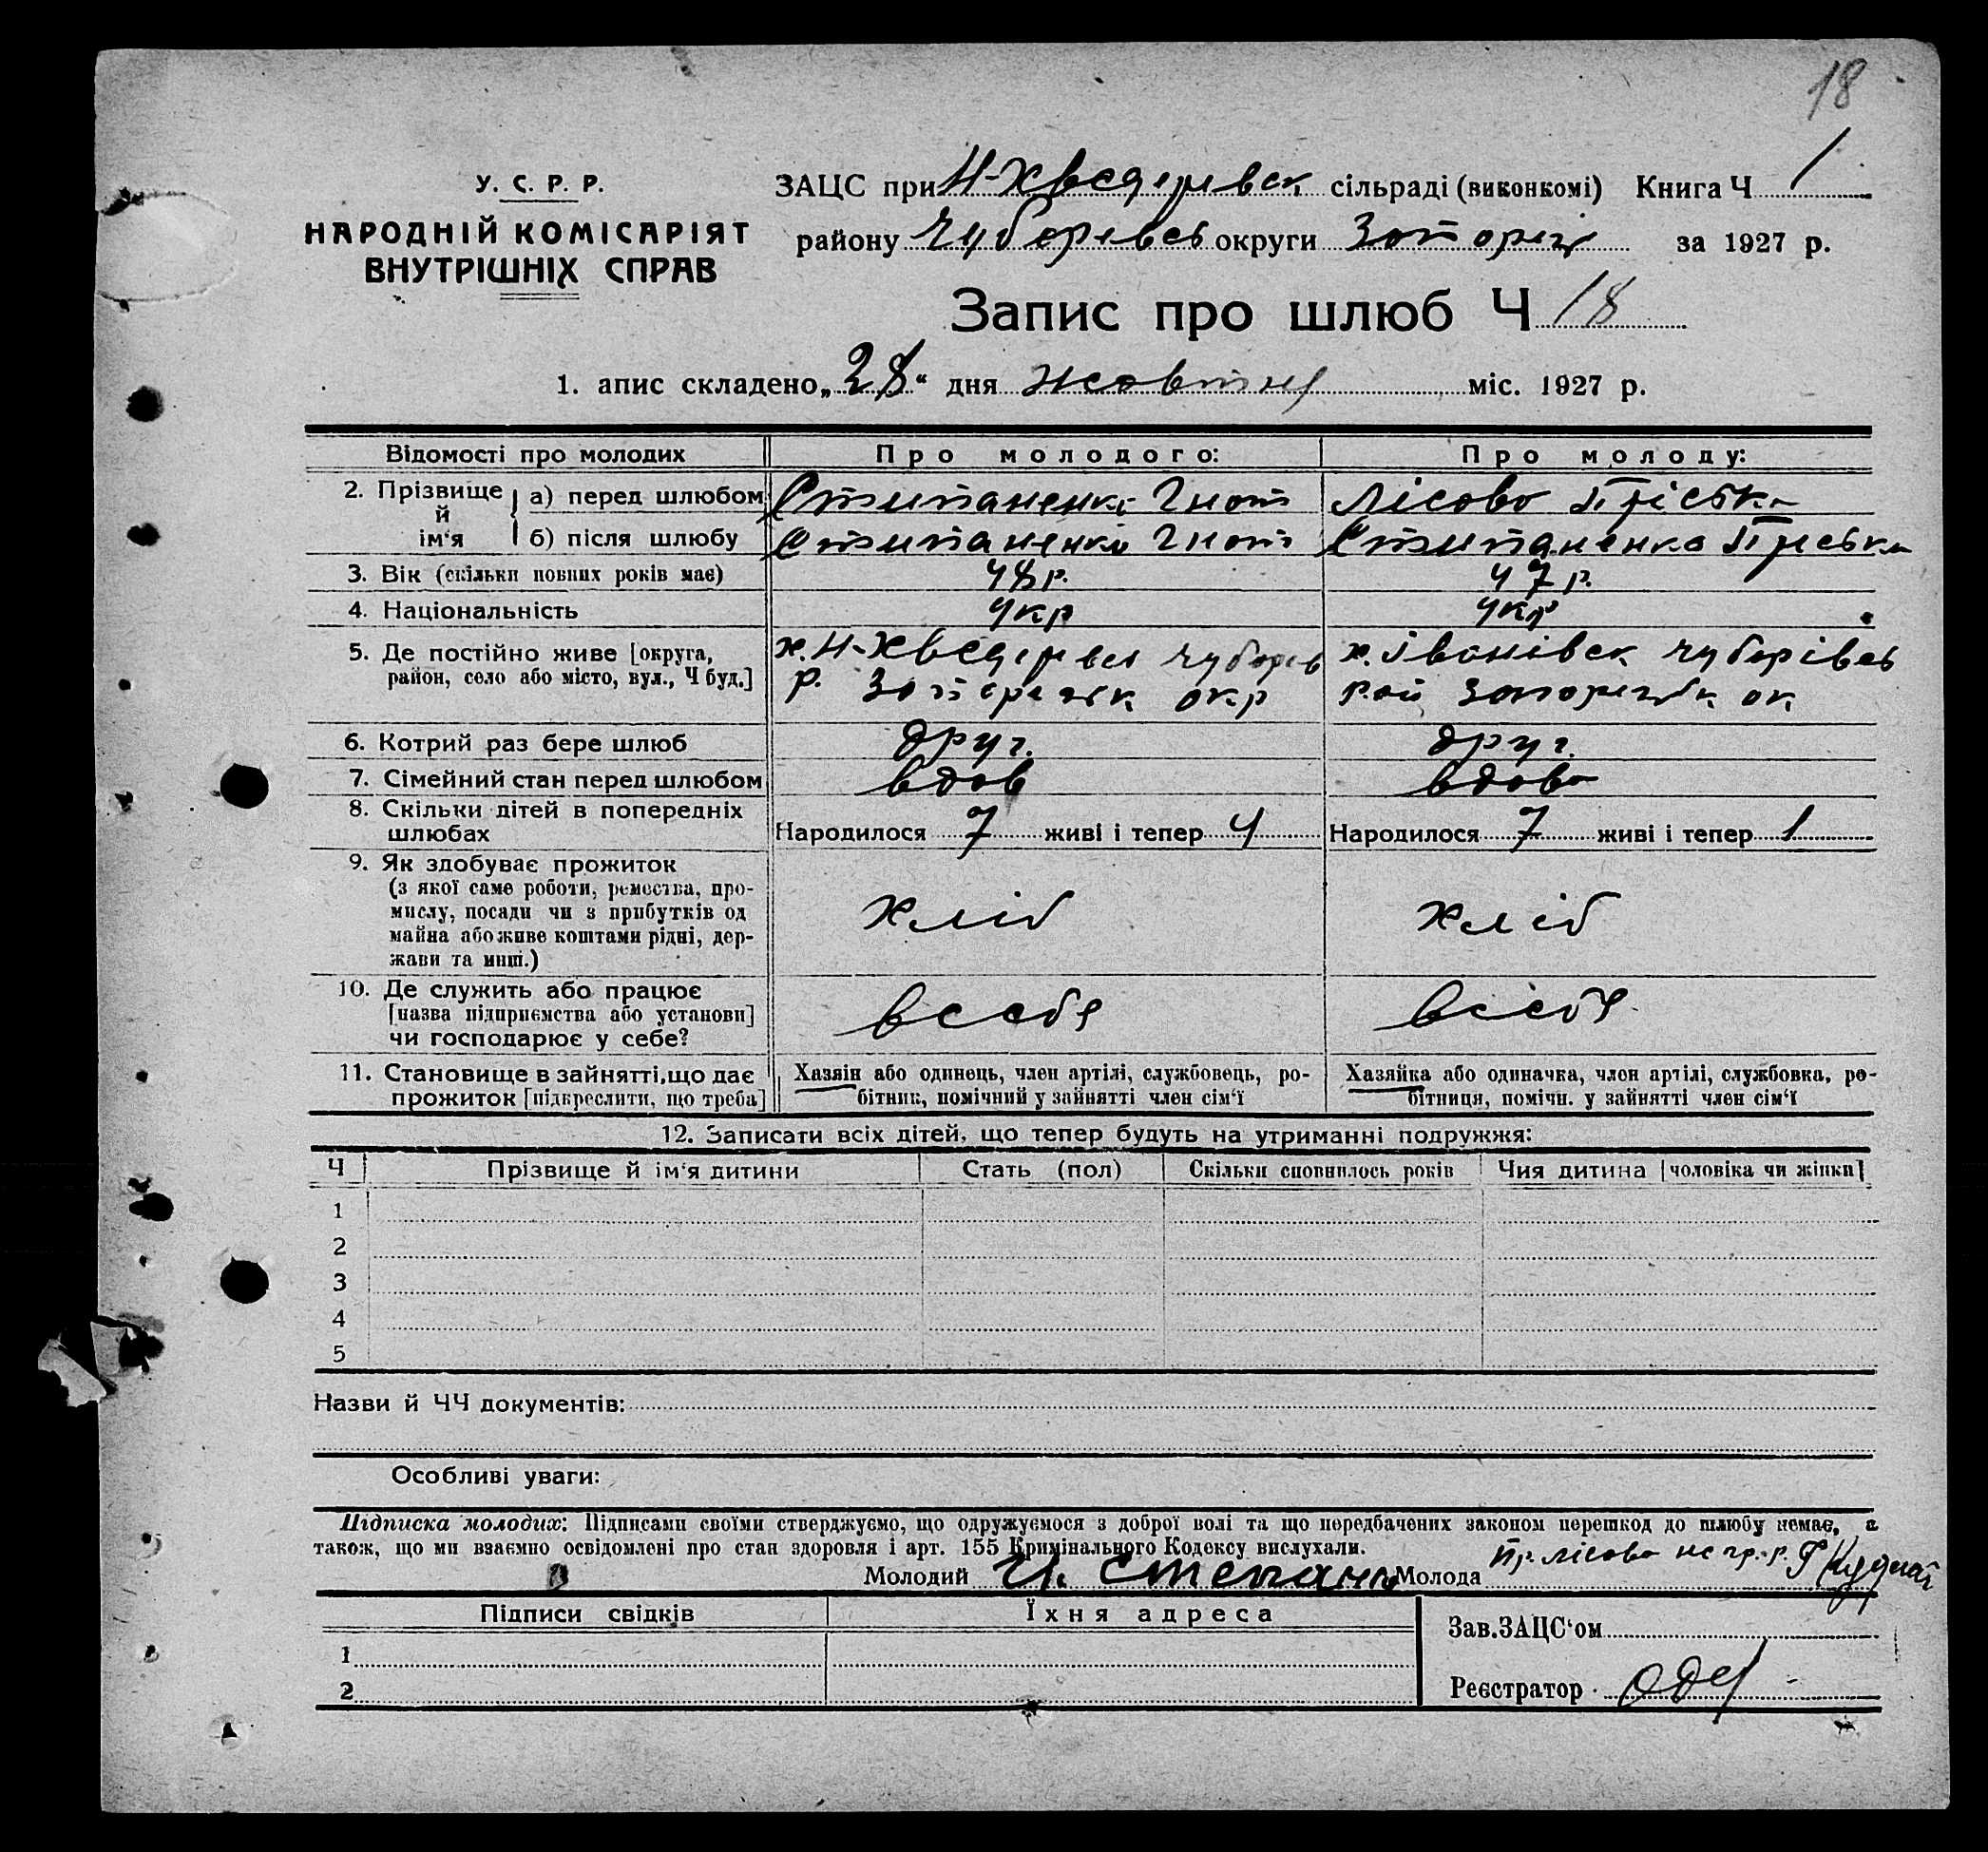 18
У. С. Р. Р.
НАРОДНІЙ КОМІСАРІЯТ
ВНУТРІШНІХ СПРАВ
ЗАЦС при Н-Хведерівск сільраді (виконкомі) Книга Ч 1
району Чубарівсь округи Запоріж за 1927 р.
Запис про шлюб Ч 18
1. апис складено „28“ дня жовтня міс. 1927 р.
Відомості про молодих Про молодого: Про молоду:
2. Прізвище й ім'я а) перед шлюбом Стипаненко Гнат Лісова Пріська
б) після шлюбу Стипаненко Гнат Стипаненко Пріська
3. Вік (скільки повних років має) 48 р. 47 р.
4. Національність Укр Укр
5. Де постійно живе [округа, х. Н-Хведерівсь Чубарів х. Іванівск Чубарівсь
район, село або місто, вул., Ч буд.] р. Запорізьк окр рай Запорізьк ок
6. Котрий раз бере шлюб друг. друг.
7. Сімейний стан перед шлюбом вдов вдова
8. Скільки дітей в попередніх
шлюбах Народилося 7 живі і тепер 4 Народилося 7 живі і тепер 1
9. Як здобуває прожиток
(з якої саме роботи, ремества, про-
мислу, посади чи з прибутків од хліб хліб
майна або живе коштами рідні, дер-
жави та инш.)
10. Де служить або працює
[назва підприємства або установи] всебе всебе
чи господарює у себе?
11. Становище в зайнятті, що дає Хазяїн або одинець, член артілі, службовець, ро- Хазяйка або одиначка, член артілі, службовка, ро-
прожиток [підкреслити, що треба] бітник, помічний у зайнятті член сім'ї бітниця, помічн. у зайнятті член сім'ї
12. Записати всіх дітей, що тепер будуть на утриманні подружжя:
Ч Прізвище й ім'я дитини Стать (пол) Скільки сповнилось років Чия дитина [чоловіка чи жінки]
1
2
3
4
5
Назви й ЧЧ документів:
Особливі уваги:
Підписка молодих: Підписами своїми стверджуємо, що одружуємося з доброї волі та що передбачених законом перешкод до шлюбу немає, а
також, що ми взаємно освідомлені про стан здоровля і арт. 155 Кримінального Кодексу вислухали.
Молодий Степан Молода Пр. Лісова не гр. р.
Підписи свідків Їхня адреса
Зав. ЗАЦС'ом
1
Реєстратор
2